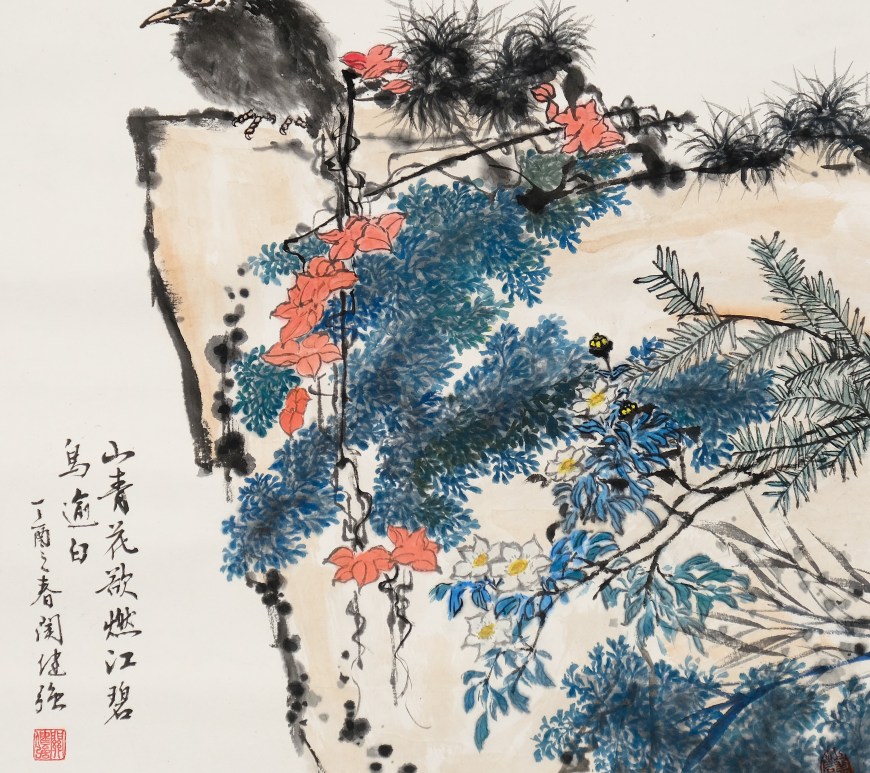 山青花欲燃江碧
鳥逾白
丁酉之春健强